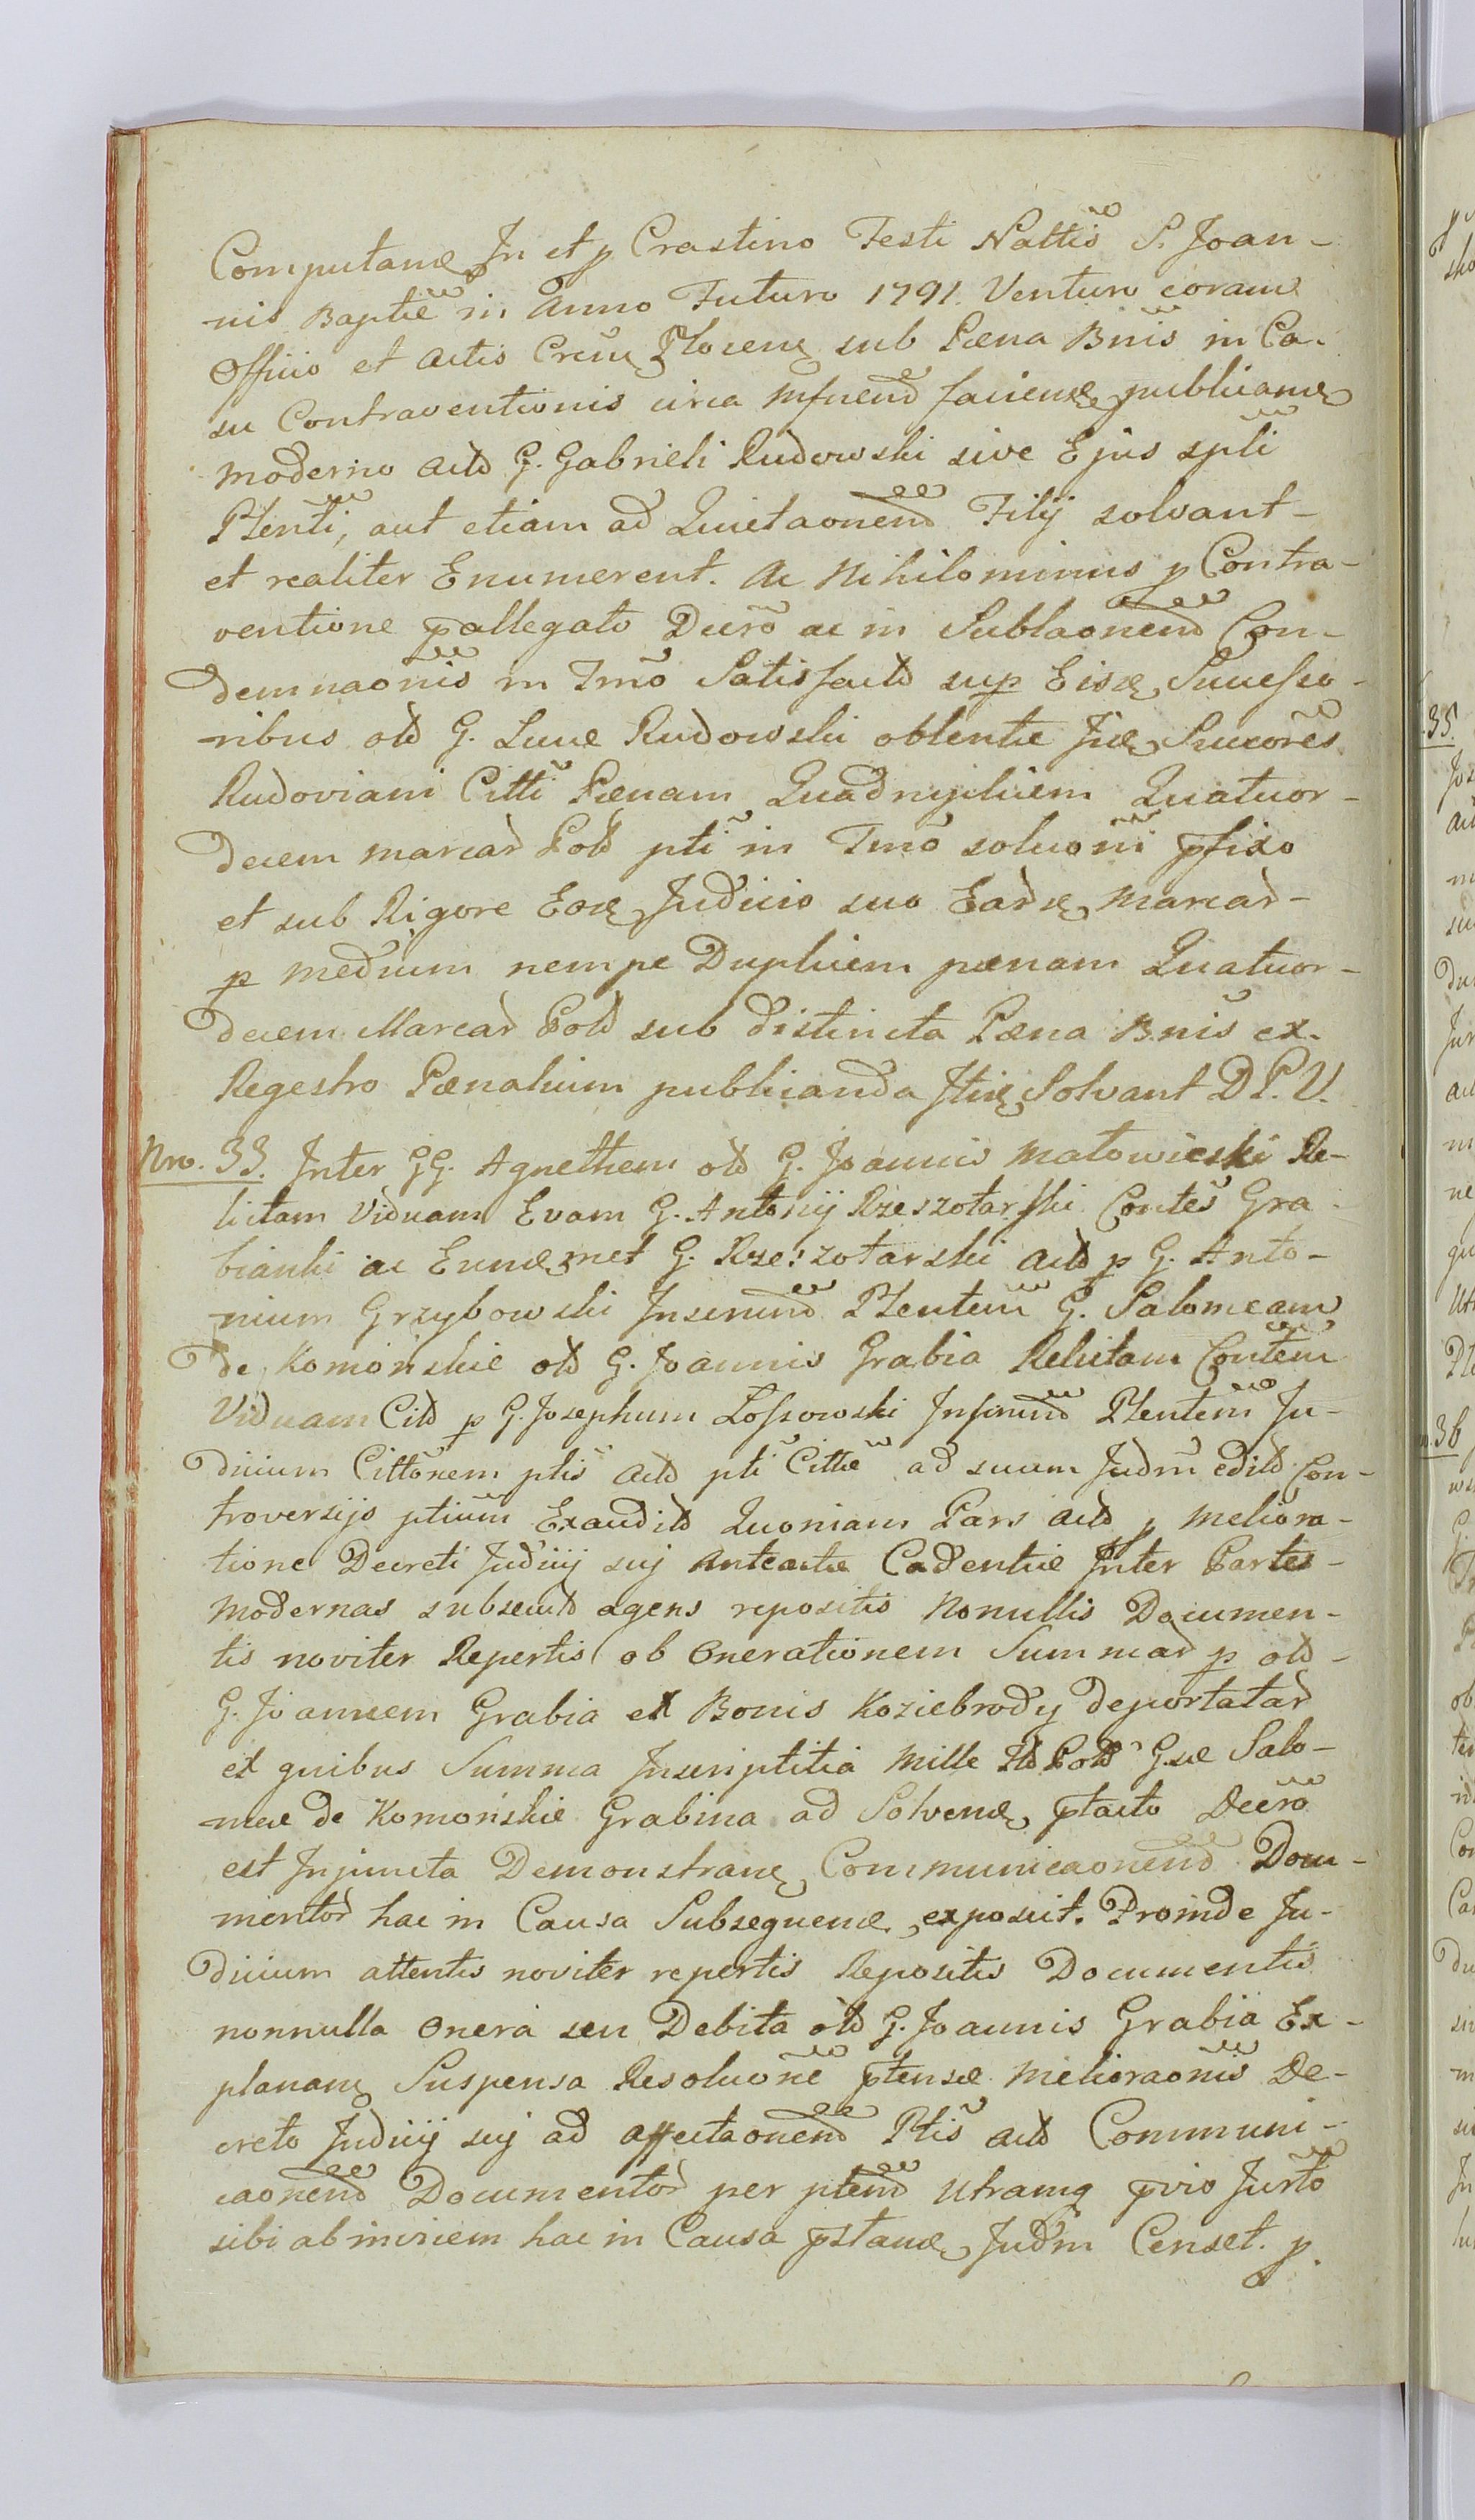 Computanꝫ In et p Crastino Festi Nattis S. Joan-
nis Baptiæ in Anno Futuro 1791. Venturo coram
Officio et Actis Crēu Plocenꝫ sub Pœna Bnis in Ca-
su Contraventionis circa faciendꝫ publicanꝫ
moderno Actō G. Gabrieli Rudowski sive Ejus spli
Plenti, aut etiam ad Quietaonend Filij solvant-
et realiter Enumerent. Ac Nihilominus p Contra-
ventione pallegato Decro ac in Sublaonend Con-
demnaonis in Tmo Satisfactō sup Eisꝫ Succesſo-
ribus olō G. Lucæ Rudowski obtentæ Jiꝫ Succores
Rudoviani Citti Pœnam Quadruplicem Quatuor-
decem marcar̄ Polō pti in Tmo soluōni pfixo
et sub Rigore Eoꝫ Judicio suo Eadꝫ Marcar-
p medium nempe Duplicem pœnam Quatuor-
decem Marcar̄ Polō sub distincta Pœna Bnis ex
Regestro Pœnalium publicanda Itiꝫ Solvant D. P. V.
Nro. 33. Inter GG. Agnethem olō G. Joannis Małowieski Re-
lictam Viduam Evam G. Antonij Rzeszotarski Contes Gra-
bianki ac Eunꝫmet G. Rzeszotarski Actō p G. Anto-
nium Grzybowski Plentem G. Salomeam
de Komońskie olō G. Joannis Grabia Relictam Contem
Viduam Citō p G. Josephum Losſowski Plentem Ju-
dicium Cittōnem ptis Actō pti Cittæ ad suum Judm editō Con-
troversijs ptium Exauditō Quoniam Pars Actō p meliora-
tione Decreti Judicij sui Anteactæ Cadentiæ Inter Partes-
modernas subsecutō agens repositis Nonullis Documen-
tis noviter Repertis ob Onerationem Summar̄ p olō-
G. Joannem Grabia ex Bonis Koziebrody deportatar̄
ex quibus Summa Inscriptitia Mille Flō Polō Gsæ Salo-
meæ de Komońskie Grabina ad Solvenꝫ ptacto Decro
est Injuncta Demonstranꝫ Communicaonend Docu-
mentor̄ hac in Causa Subsequenꝫ exposcit. Proinde Ju-
dicium attentis noviter repertis Repositis Documentis
nonnulla Onera seu Debita olō G. Joannis Grabia Ex-
plananꝫ Suspensa Resoluōne ptensæ melioraonis De-
creto Judicij sui ad affectaonend Ptis Actō Communi-
caonend Documentor̄ per ptend utramq pvio Jurto
sibi abinvicem hac in Causa pstanꝫ Judm Censet. p.